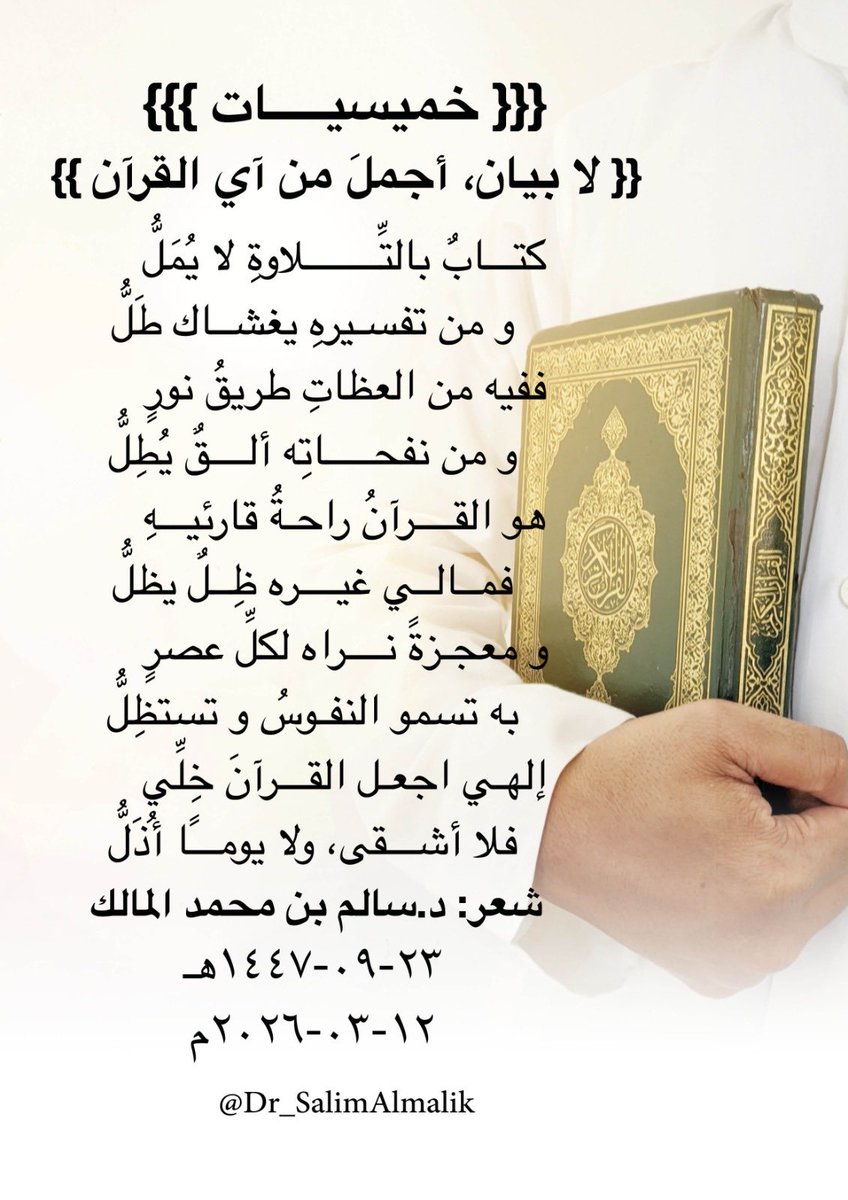 {{{ خميسيـــــات }}}
{{ لا بيان، أجملَ من آي القرآن }}
كتـــابٌ بالتِّـــــــلاوةِ لا يُمَلُّ
و من تفسـيرهِ يغشـــاك طَلُّ
ففيه من العظاتِ طريقُ نورٍ
و من نفحـــــاتِه ألـــقٌ يُطِلُّ
هو القـــرآنُ راحـةُ قارئيـــهِ
فمـالـــي غيـــره ظِــلٌ يظلُّ
و معجـزةً نـــراه لكلِّ عصرٍ
به تسمو النفـوسُ و تستظِلُّ
إلهـي اجعـل القـــرآنَ خِلِّي
فلا أشـــقى، ولا يومـــًا أُذَلُّ
شعر: د.سالم بن محمد المالك
٢٣-٠٩-١٤٤٧هـ
١٢-٠٣-٢٠٢٦م
@Dr_SalimAlmalik
القرآن الكريم
القرآن الكريم